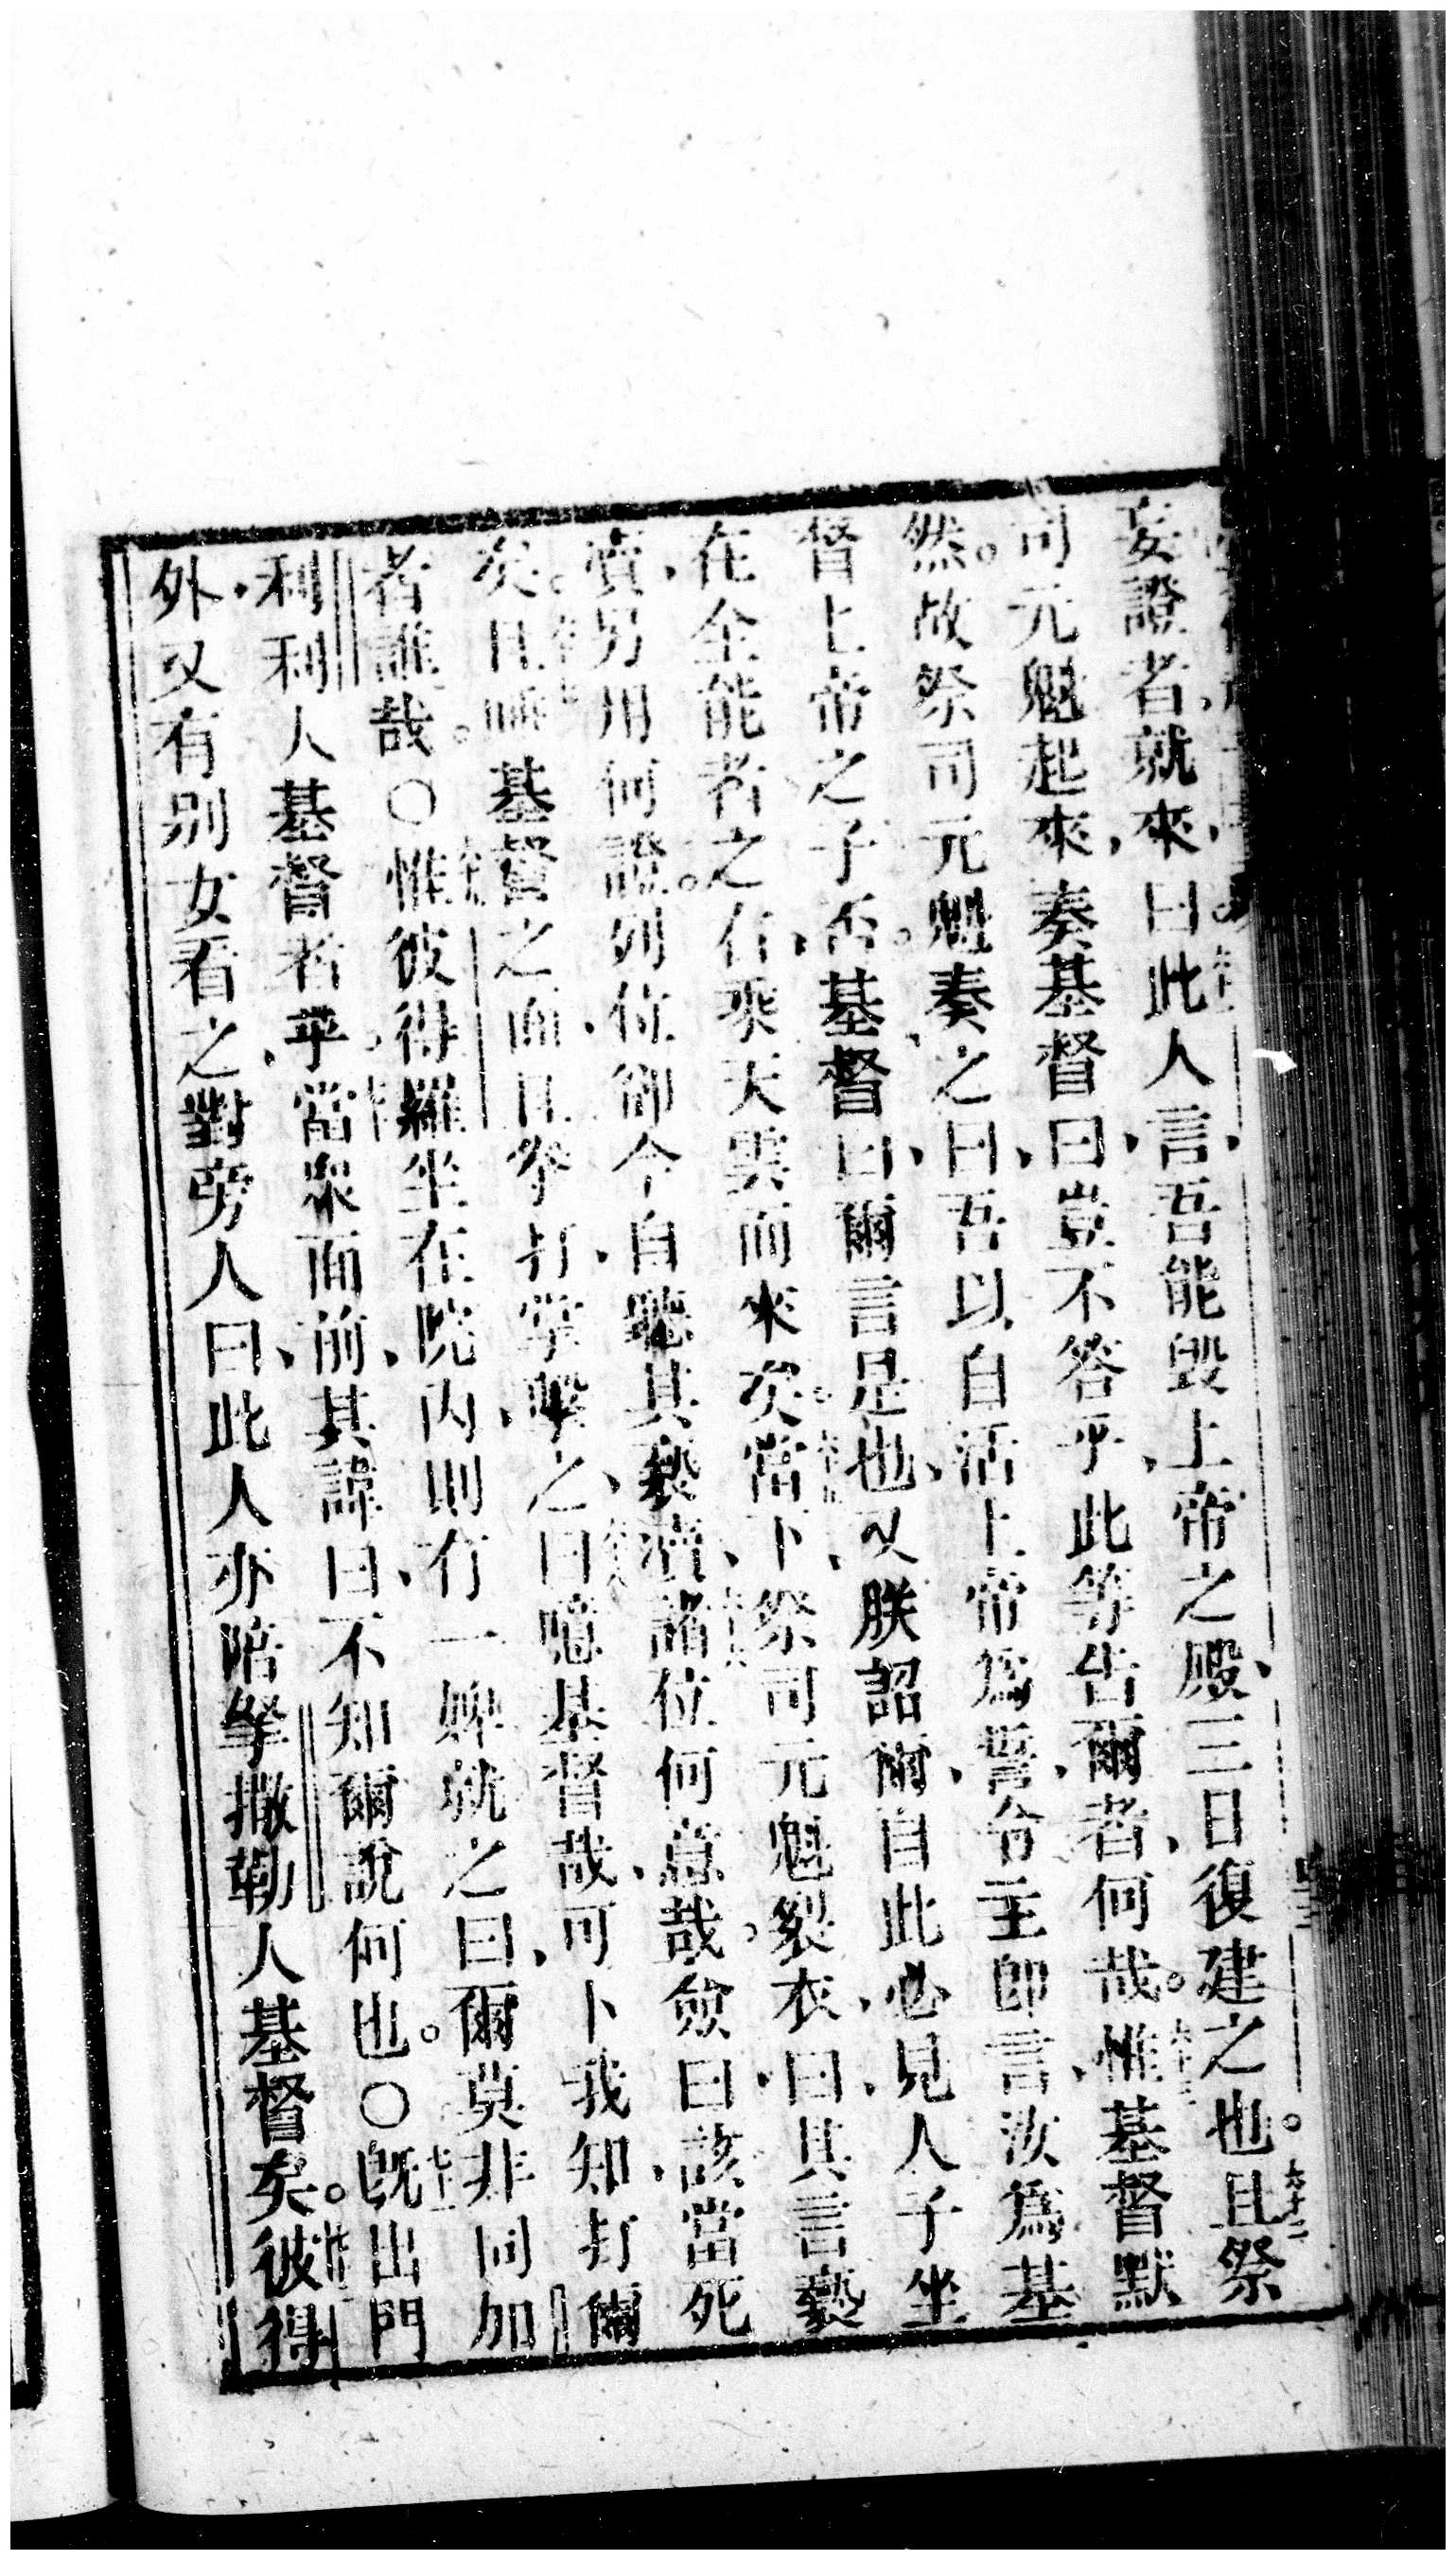 妄證者、就來、曰此人言、吾能毀上帝之殿、三日復建之也。且祭
司元魁起來、奏基督曰、豈不答乎、此等告爾者、何哉。惟基督默
然。故祭司元魁奏之曰、吾以自活上帝為誓、令主即言、汝為基
督上帝之子否。基督曰、爾言是也、又朕詔爾、自此必見人子坐
在全能者之右、乘天雲而來矣。當下、祭司元魁裂衣、曰、其言褻
瀆、另用何證。列位卽今自聽其褻瀆、諸位何意哉。僉曰、該當死
矣。且唾基督之面、且拳打、掌擊之、曰、噫基督哉、可卜我知、打爾
者誰哉。○惟彼得羅坐在院內、則有一婢就之曰、爾莫非同加
利利人基督者乎、當眾面前、其諱曰、不知爾說何也。○旣出門
外、又有別女看之、對旁人曰、此人亦陪拏撒勒人基督矣。彼得